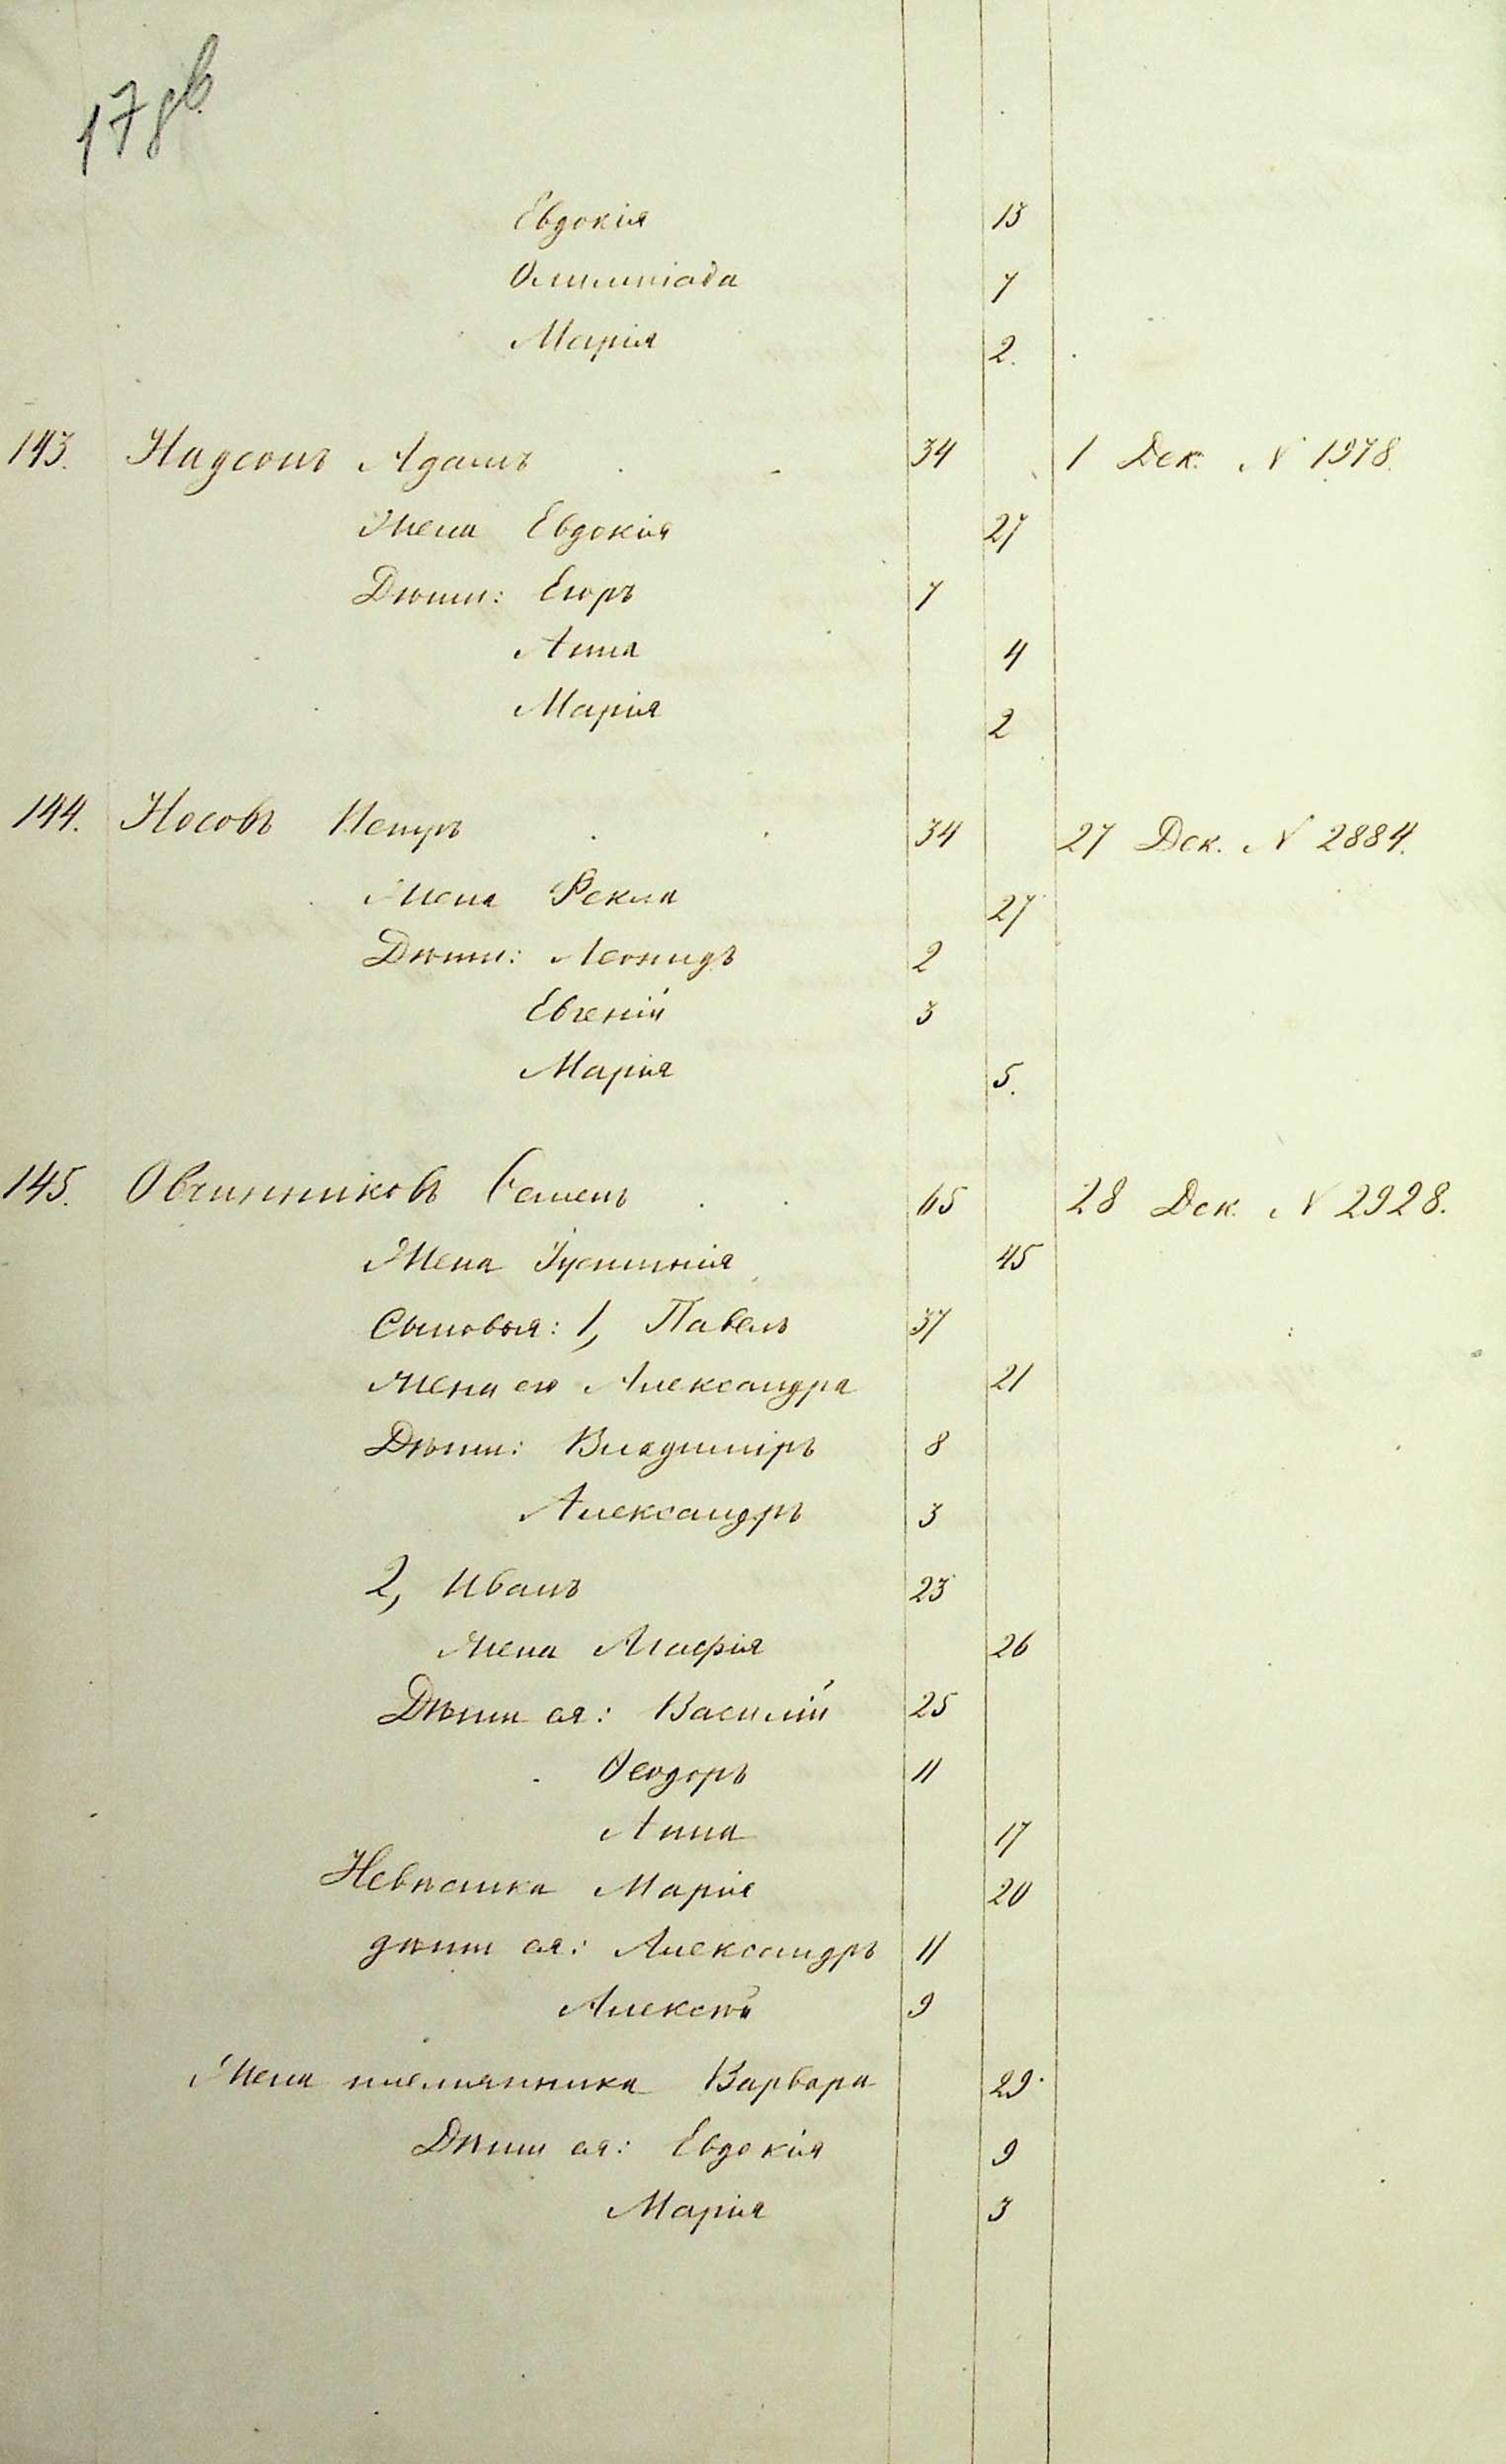 17 об.
Евдокія 13
Олимпіада 7
Марія 2.
143. Надсонъ Адамъ 34 1 Дек. N 1978.
Жена Евдокія 27
Дѣти: Егоръ 7
Анна 4
Марія 2
144. Носовъ Петръ 34 27 Дек. N 2884.
Жена Фекла 27
Дѣти: Леонидъ 2
Евгеній 3
Марія 5.
145. Овчинниковъ Семенъ 65 28 Дек. N 2928.
Жена Іустинія 45
Сыновья: 1, Павелъ 37
Жена его Александра 21
Дѣти: Владиміръ 8
Александръ 3
2, Иванъ 23
Жена Агафія 26
Дѣти ея: Василій 25
Ѳеодоръ 11
Анна 17
Невѣстка Марія 20
дѣти ея: Александръ 11
Алексѣй 9
Жена племянника Варвара 29.
Дѣти ея: Евдокія 9
Марія 3